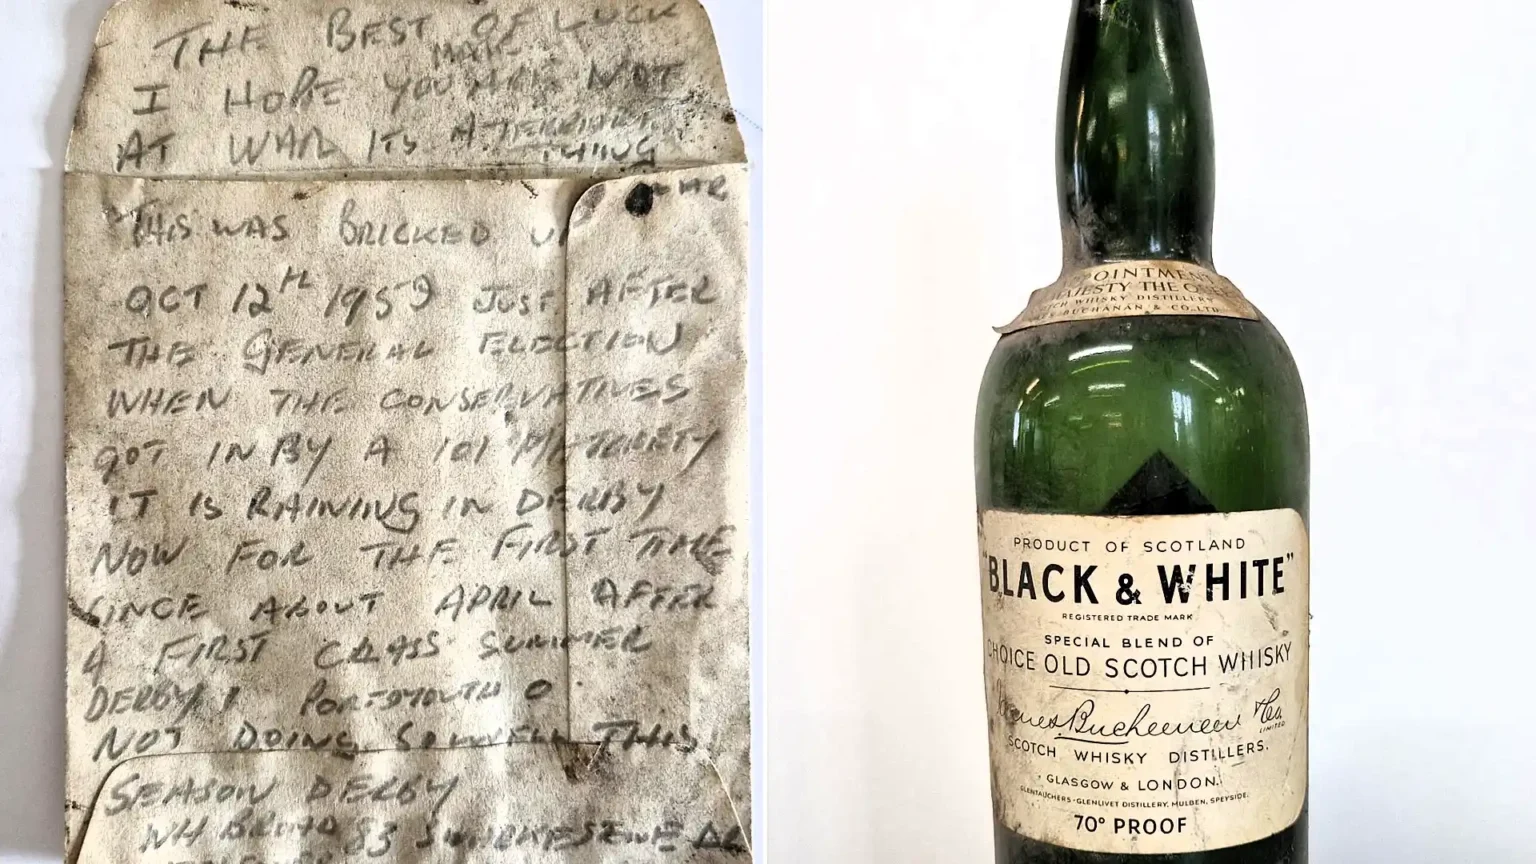 THE BEST OF LUCK
I HOPE YOU ARE NOT
AT WAR ITS A TERRIBLE
THING
THIS WAS BRICKED UP
OCT 12TH 1959 JUST AFTER
THE GENERAL ELECTION
WHEN THE CONSERVATIVES
GOT IN BY A 101
IT IS RAINING IN DERBY
NOW FOR THE FIRST TIME
SINCE ABOUT APRIL AFTER
A FIRST CLASS SUMMER
DERBY 1 PORTSMOUTH 0
NOT DOING SO WELL THIS
SEASON DERBY
83
OINTMEN
JESTY THE
WHISKY DISTILLERS
BUCHANAN & CO. LTD
PRODUCT OF SCOTLAND
"BLACK & WHITE"
REGISTERED TRADE MARK
SPECIAL BLEND OF
CHOICE OLD SCOTCH WHISKY
James Buchanan & Co.
LIMITED
SCOTCH WHISKY DISTILLERS.
GLASGOW & LONDON.
GLENTAUCHERS-GLENLIVET DISTILLERY, MULBEN, SPEYSIDE.
70° PROOF